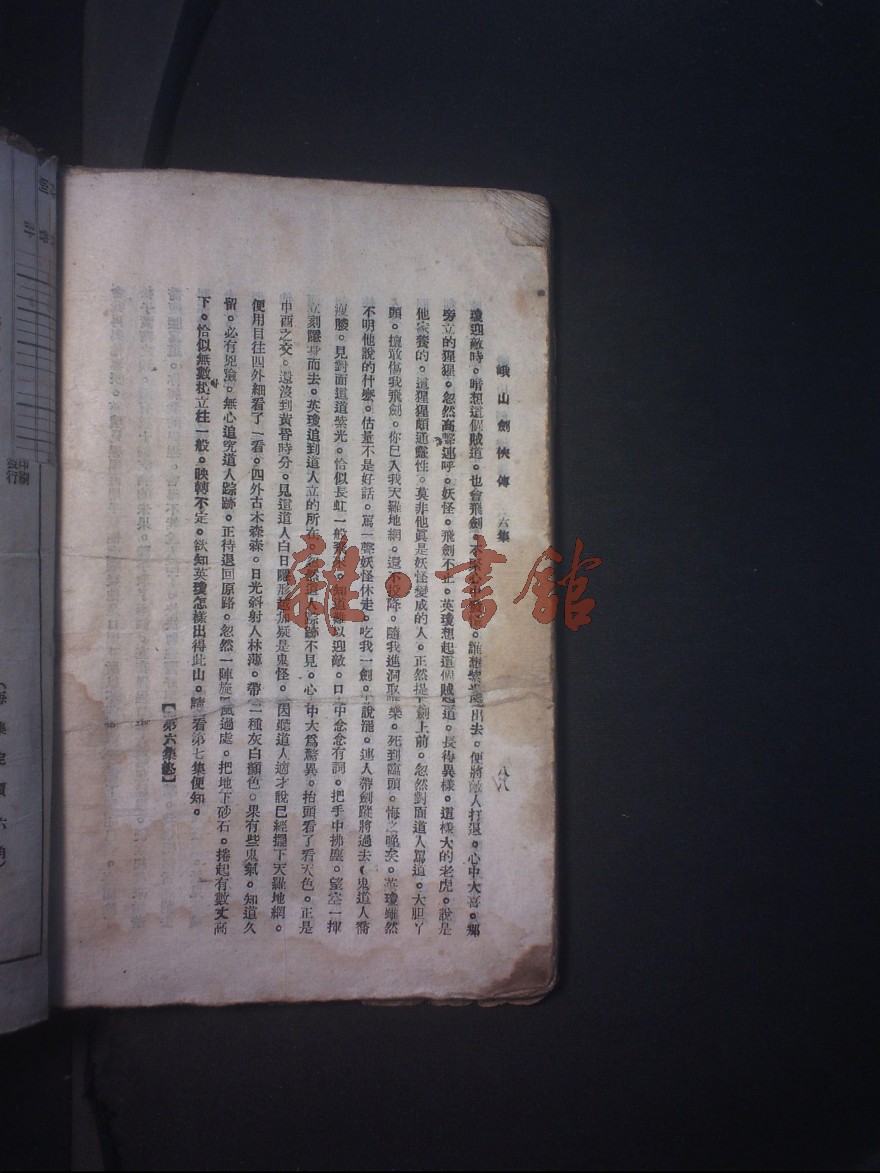 峨山劍俠傳 六集 八八
瓊迎敵時。暗想這個賊道。也會飛劍。 誰想紫光 出去。便將敵人打退。心中大喜。那
旁立的猩猩。忽然高聲連呼。妖怪。飛劍不止。英瓊想起這個賊 道。長得異樣。這樣大的老虎。說是
他家養的。這猩猩頗通靈性。莫非他眞是妖怪變成的人。正然提 劍上前。忽然對面道人罵道。大胆丫
頭。擅敢傷我飛劍。你已入我天羅地網。還不 降。隨我進洞取 樂。死到臨頭。悔之晚矣。英瓊雖然
不明他說的什麼。估量不是好話。罵一聲妖怪休走。吃我一劍。 說罷。連人帶劍蹤將過去。鬼道人喬
瘦滕。見對面這道紫光。恰似長虹一般飛來。知道難以迎敵。口中念念有詞。把手中拂塵。望空一揮
立刻隱身而去。英瓊追到道人立的所在。忽然道人踪跡不見。心中大爲驚異。抬頭看了看天色。正是
申酉之交。還沒到黃昏時分。見這道人白日隱形 加疑是鬼怪。 因聽道人適才說已經擺下天羅地網。
便用目往四外細看了一看。四外古木森森。日光斜射入林薄。帶 一種灰白顏色。果有些鬼氣。知道久
留。必有兇險。無心追究道人踪跡。正待退回原路。忽然一陣旋風過處。把地下砂石。捲起有數丈高
下。恰似無數 立柱一般。映轉不定。欲知英瓊怎樣出得此山。請看第七集便知。
【第六集終】
印刷
發行
(每集定價六角)
雜·書館